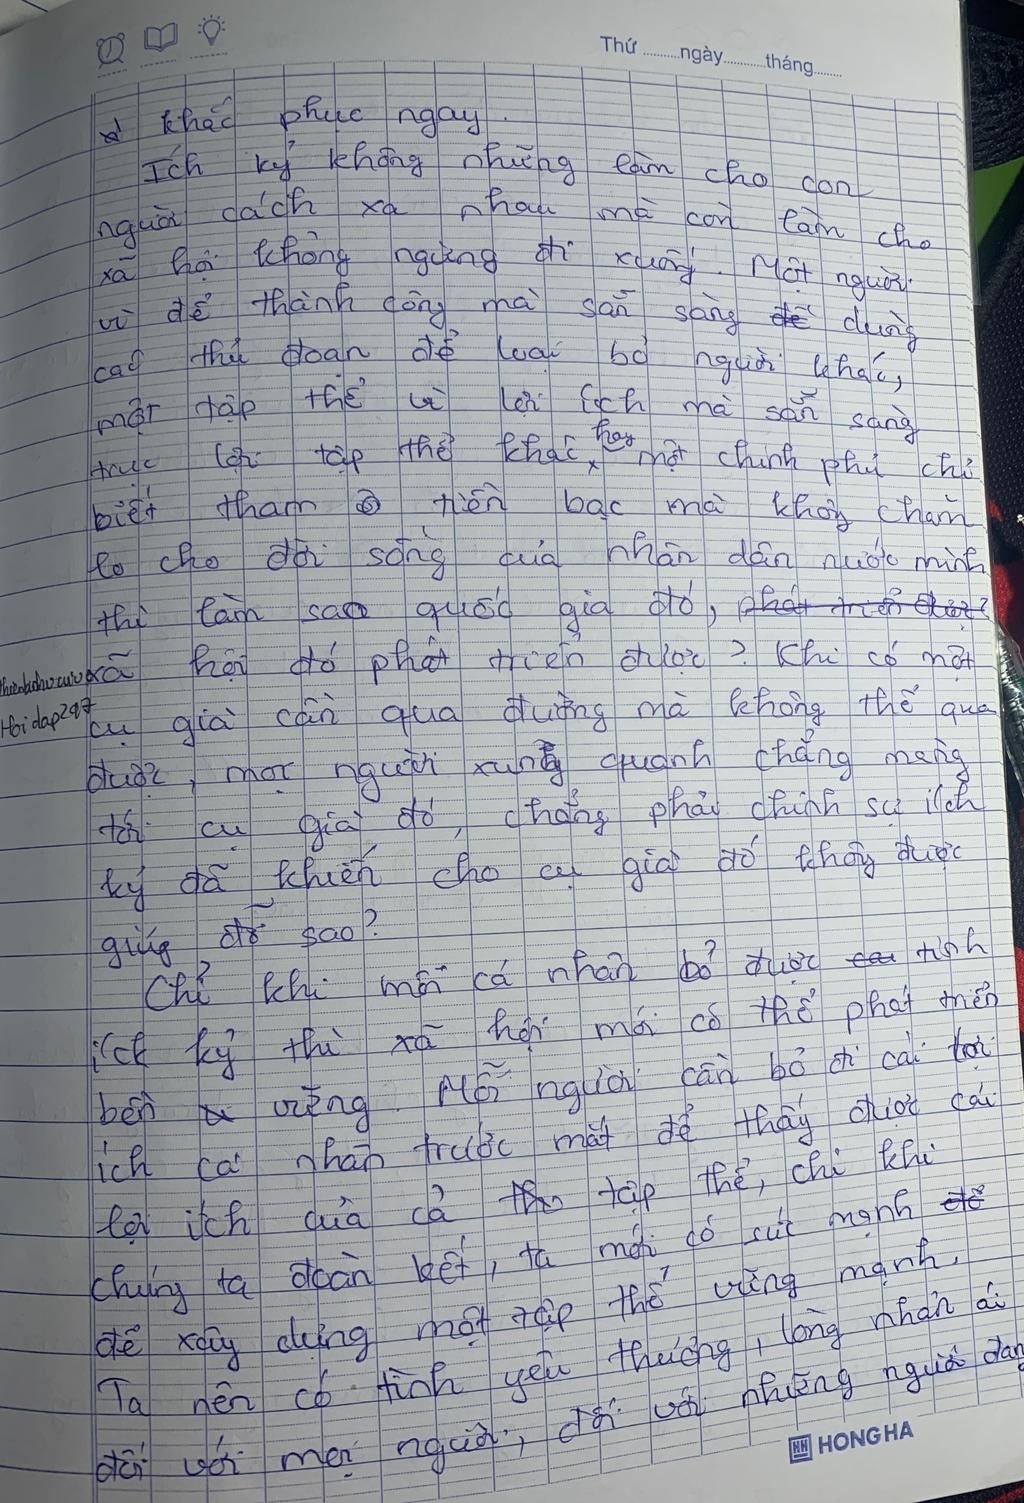 Thứ.........ngày...........tháng.......
khắc phục ngay.
Ích kỷ không những làm cho con
người cách xa nhau mà còn làm cho
xã hội không ngừng đi xuống. Một người
vì để thành công mà sẵn sàng để dùng
các thủ đoạn để loại bỏ người khác,
một tập thể vì lợi ích mà sẵn sàng
trục lợi tập thể khác, hay một chính phủ chỉ
biết tham ô tiền bạc mà không chăm
lo cho đời sống của nhân dân nước mình
thì làm sao quốc gia đó, phát triển được?
xã hội đó phát triển được? Khi có một
cụ già cần qua đường mà không thể qua
được, mọi người xung quanh chẳng màng
tới cụ già đó, chẳng phải chính sự ích
kỷ đã khiến cho cụ già đó không được
giúp đỡ sao?
Chỉ khi mỗi cá nhân bỏ được tính
ích kỷ thì xã hội mới có thể phát triển
bền vững. Mỗi người cần bỏ đi cái lợi
ích cá nhân trước mắt để thấy được cái
lợi ích của cả tập thể, chỉ khi
chúng ta đoàn kết, ta mới có sức mạnh để
để xây dựng một tập thể vững mạnh.
Ta nên có tình yêu thương, lòng nhân ái
đối với mọi người, đối với những người đang
Hoidap247
HONG HA